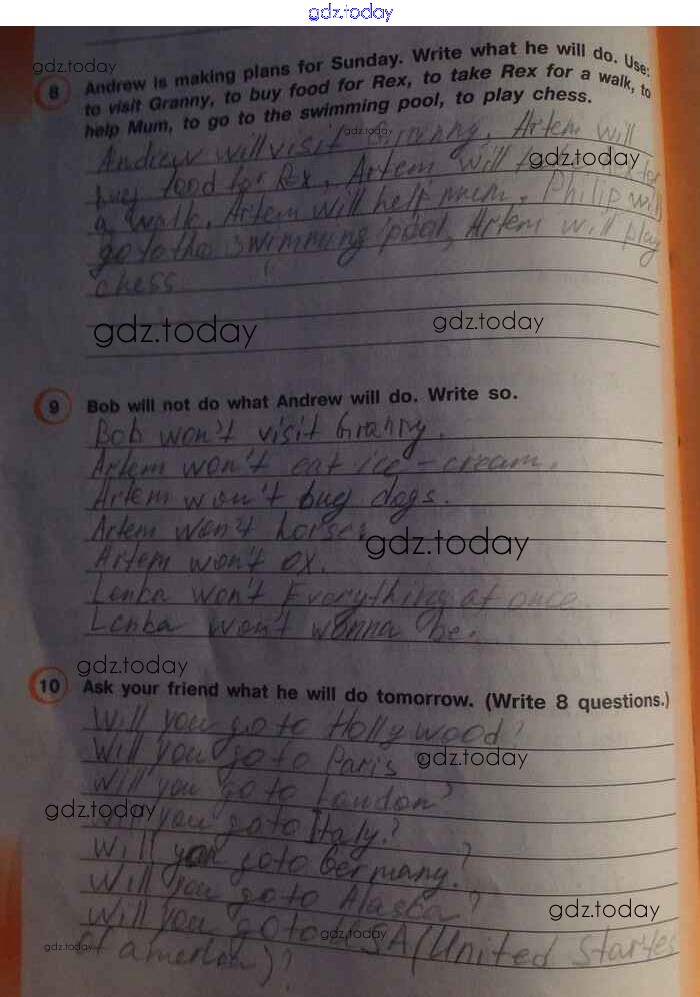 gdz.today
gdz.today
8 Andrew is making plans for Sunday. Write what he will do. Use:
to visit Granny, to buy food for Rex, to take Rex for a walk, to
help Mum, to go to the swimming pool, to play chess.
gdz.today
Andrew will visit Granny. Artem will
gdz.today
buy food for Rex, Artem will for
a walk. Artem will help mum. Philip will
go to the swimming pool, Artem will play
chess
gdz.today
gdz.today
9 Bob will not do what Andrew will do. Write so.
Bob won't visit Granny.
Artem won't eat ice-cream.
Artem won't buy dogs.
Artem won't horses
gdz.today
Artem won't ox.
Lenka won't Everything at once.
Lenka won't wonna be.
gdz.today
10 Ask your friend what he will do tomorrow. (Write 8 questions.)
Will you go to Hollywood?
Will you go to Paris
gdz.today
Will you go to London?
gdz.today
Will you go to Italy?
Will you go to Germany?
Will you go to Alaska?
gdz.today
Will you go to USA (United
gdz.today
gdz.today
of )?